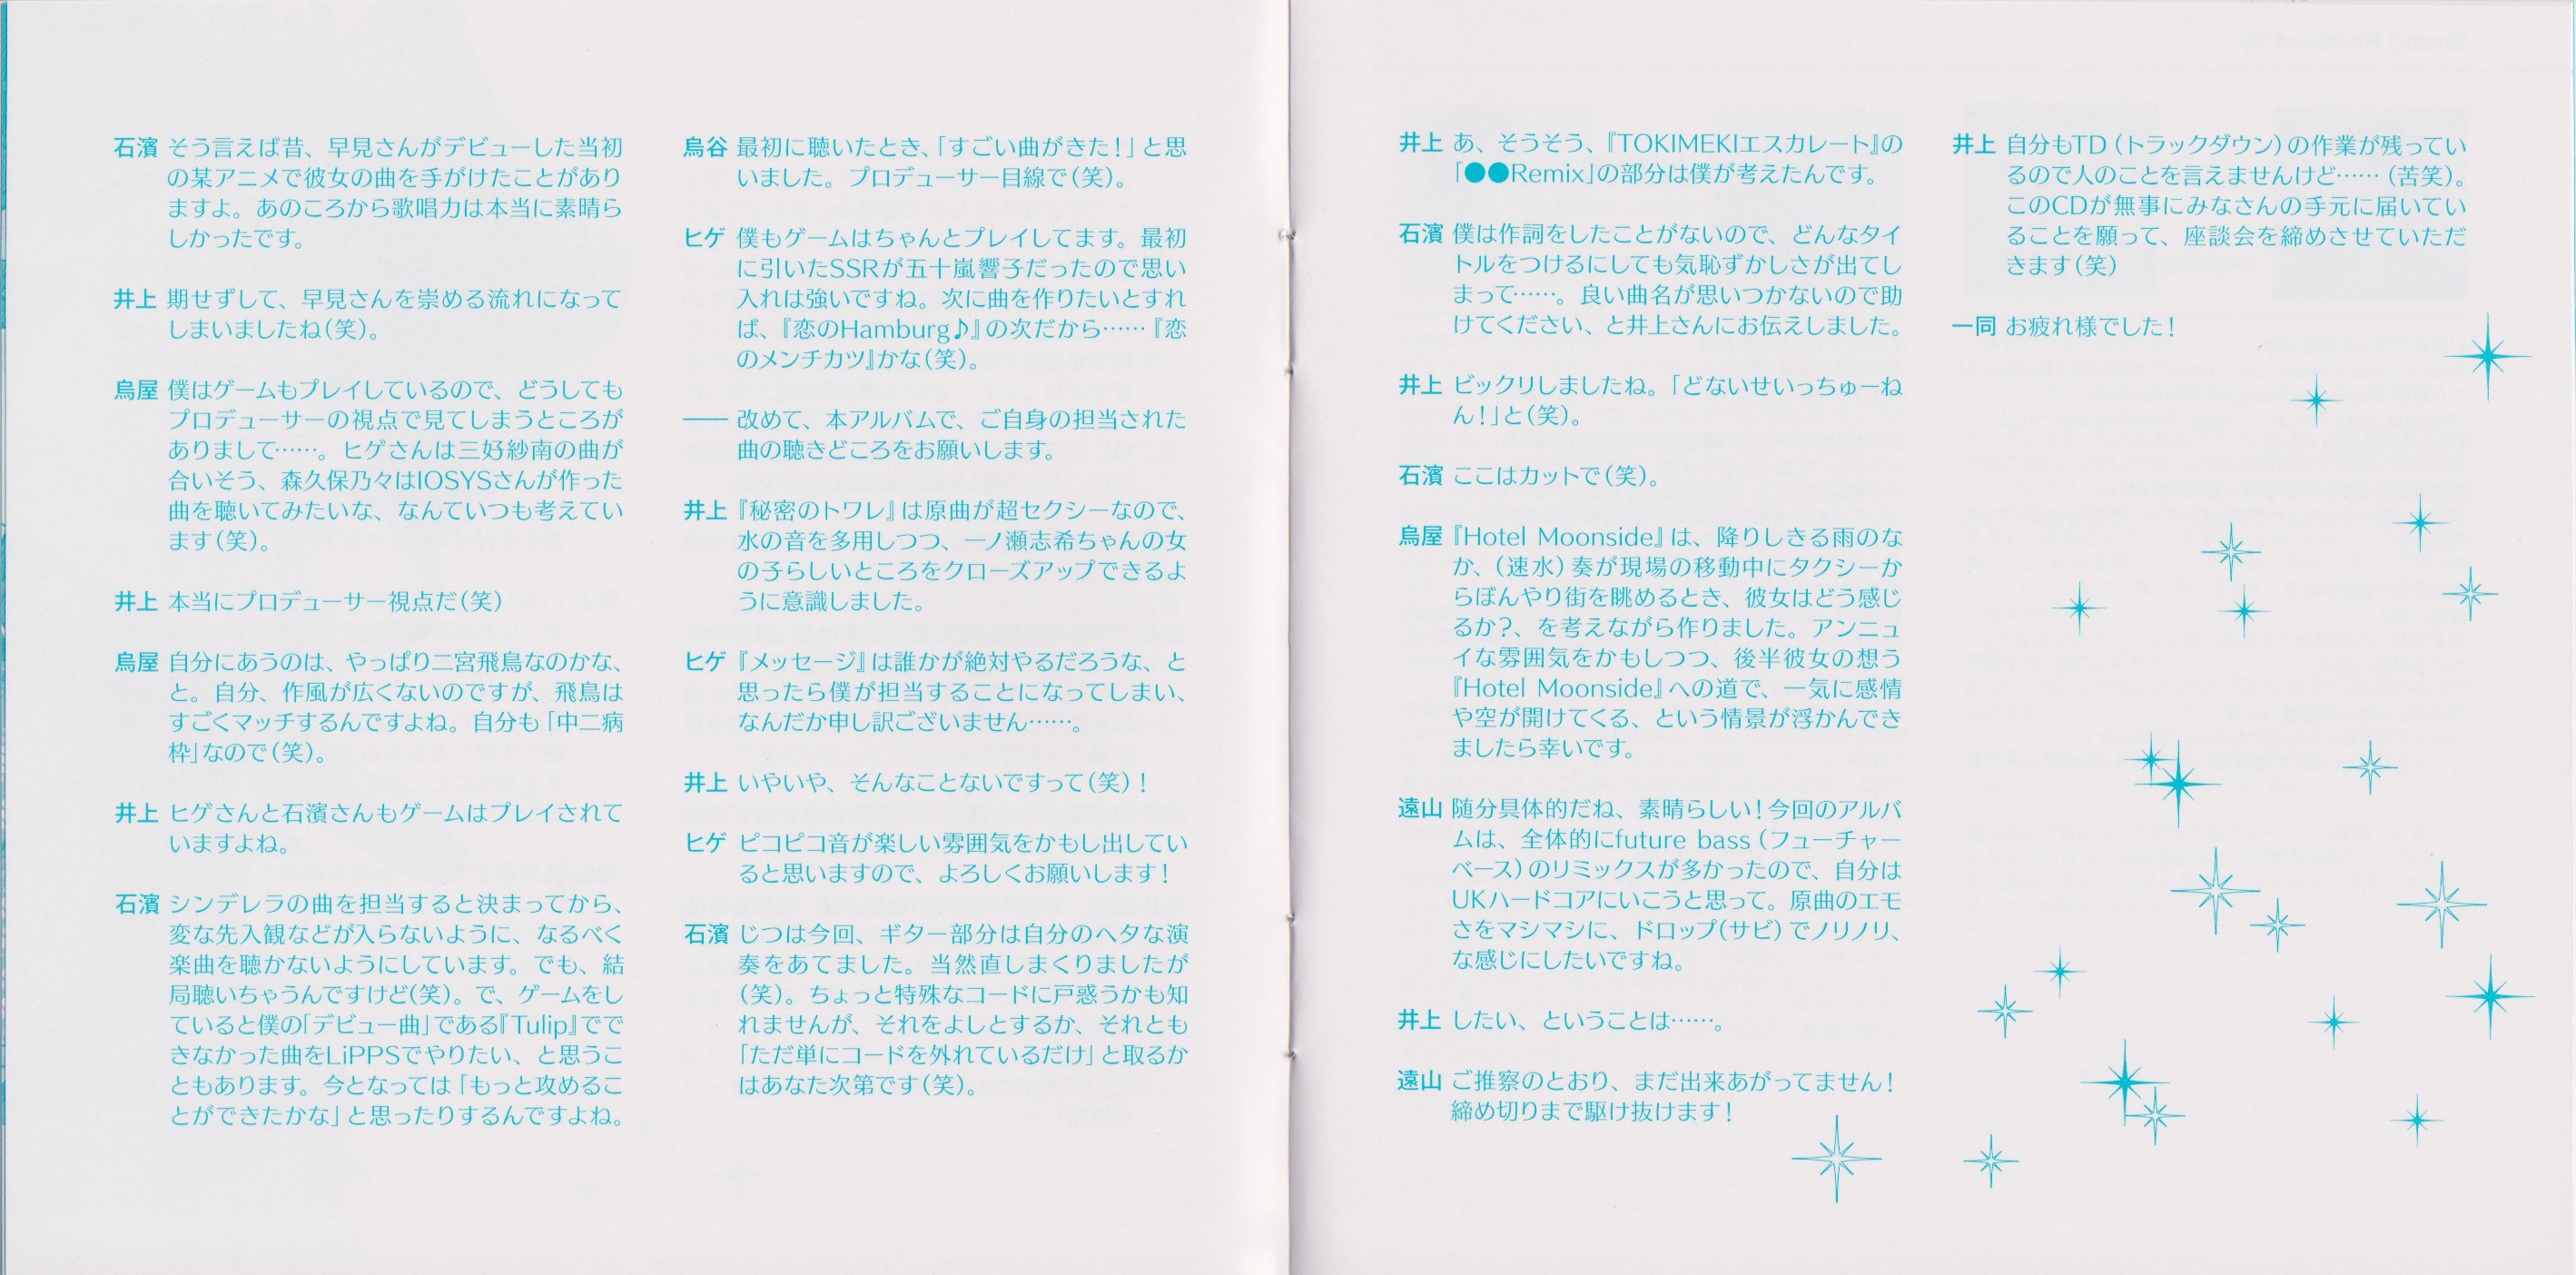 石濱 そう言えば昔、早見さんがデビューした当初
の某アニメで彼女の曲を手がけたことがあり
ますよ。あのころから歌唱力は本当に素晴ら
しかったです。
井上 期せずして、早見さんを崇める流れになって
しまいましたね(笑)。
烏屋 僕はゲームもプレイしているので、どうしても
プロデューサーの視点で見てしまうところが
ありまして……。ヒゲさんは三好紗南の曲が
合いそう、森久保乃々はIOSYSさんが作った
曲を聴いてみたいな、なんていつも考えてい
ます(笑)。
井上 本当にプロデューサー視点だ(笑)
烏屋 自分にあうのは、やっぱり二宮飛鳥なのかな、
と。自分、作風が広くないのですが、飛鳥は
すごくマッチするんですよね。自分も「中二病
枠」なので(笑)。
井上 ヒゲさんと石濱さんもゲームはプレイされて
いますよね。
石濱 シンデレラの曲を担当すると決まってから、
変な先入観などが入らないように、なるべく
楽曲を聴かないようにしています。でも、結
局聴いちゃうんですけど(笑)。で、ゲームをし
ていると僕の「デビュー曲」である『Tulip』でで
きなかった曲をLiPPSでやりたい、と思うこ
ともあります。今となっては「もっと攻めるこ
とができたかな」と思ったりするんですよね。
烏谷 最初に聴いたとき、「すごい曲がきた!」と思
いました。プロデューサー目線で(笑)。
ヒゲ 僕もゲームはちゃんとプレイしてます。最初
に引いたSSRが五十嵐響子だったので思い
入れは強いですね。次に曲を作りたいとすれ
ば、『恋のHamburg♪』の次だから……『恋
のメンチカツ』かな(笑)。
―― 改めて、本アルバムで、ご自身の担当された
曲の聴きどころをお願いします。
井上 『秘密のトワレ』は原曲が超セクシーなので、
水の音を多用しつつ、一ノ瀬志希ちゃんの女
の子らしいところをクローズアップできるよ
うに意識しました。
ヒゲ 『メッセージ』は誰かが絶対やるだろうな、と
思ったら僕が担当することになってしまい、
なんだか申し訳ございません……。
井上 いやいや、そんなことないですって(笑)!
ヒゲ ピコピコ音が楽しい雰囲気をかもし出してい
ると思いますので、よろしくお願いします!
石濱 じつは今回、ギター部分は自分のヘタな演
奏をあてました。当然直しまくりましたが
(笑)。ちょっと特殊なコードに戸惑うかも知
れませんが、それをよしとするか、それとも
「ただ単にコードを外れているだけ」と取るか
はあなた次第です(笑)。
井上 あ、そうそう、『TOKIMEKIエスカレート』の
「●●Remix」の部分は僕が考えたんです。
石濱 僕は作詞をしたことがないので、どんなタイ
トルをつけるにしても気恥ずかしさが出てし
まって……。良い曲名が思いつかないので助
けてください、と井上さんにお伝えしました。
井上 ビックリしましたね。「どないせいっちゅーね
ん!」と(笑)。
石濱 ここはカットで(笑)。
烏屋 『Hotel Moonside』は、降りしきる雨のな
か、(速水)奏が現場の移動中にタクシーか
らぼんやり街を眺めるとき、彼女はどう感じ
るか?、を考えながら作りました。アンニュ
イな雰囲気をかもしつつ、後半彼女の想う
『Hotel Moonside』への道で、一気に感情
や空が開けてくる、という情景が浮かんでき
ましたら幸いです。
遠山 随分具体的だね、素晴らしい!今回のアルバ
ムは、全体的にfuture bass(フューチャー
ベース)のリミックスが多かったので、自分は
UKハードコアにいこうと思って。原曲のエモ
さをマシマシに、ドロップ(サビ)でノリノリ、
な感じにしたいですね。
井上 したい、ということは……。
遠山 ご推察のとおり、まだ出来あがってません!
締め切りまで駆け抜けます!
井上 自分もTD(トラックダウン)の作業が残ってい
るので人のことを言えませんけど……(苦笑)。
このCDが無事にみなさんの手元に届いてい
ることを願って、座談会を締めさせていただ
きます(笑)
一同 お疲れ様でした!